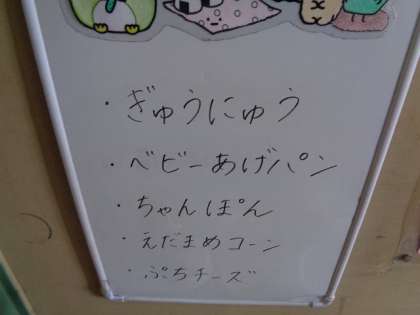 ・ぎゅうにゅう
・ベビーあげパン
・ちゃんぽん
・えだまめコーン
・ぷちチーズ